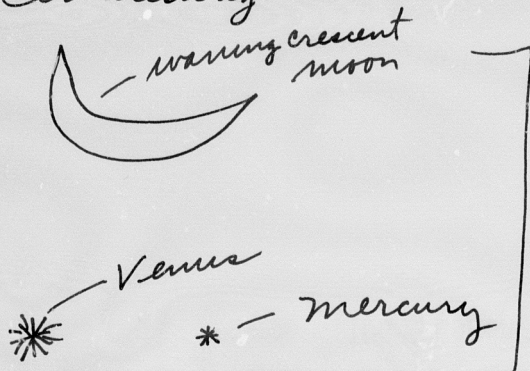 waning crescent
moon
Venus
mercury